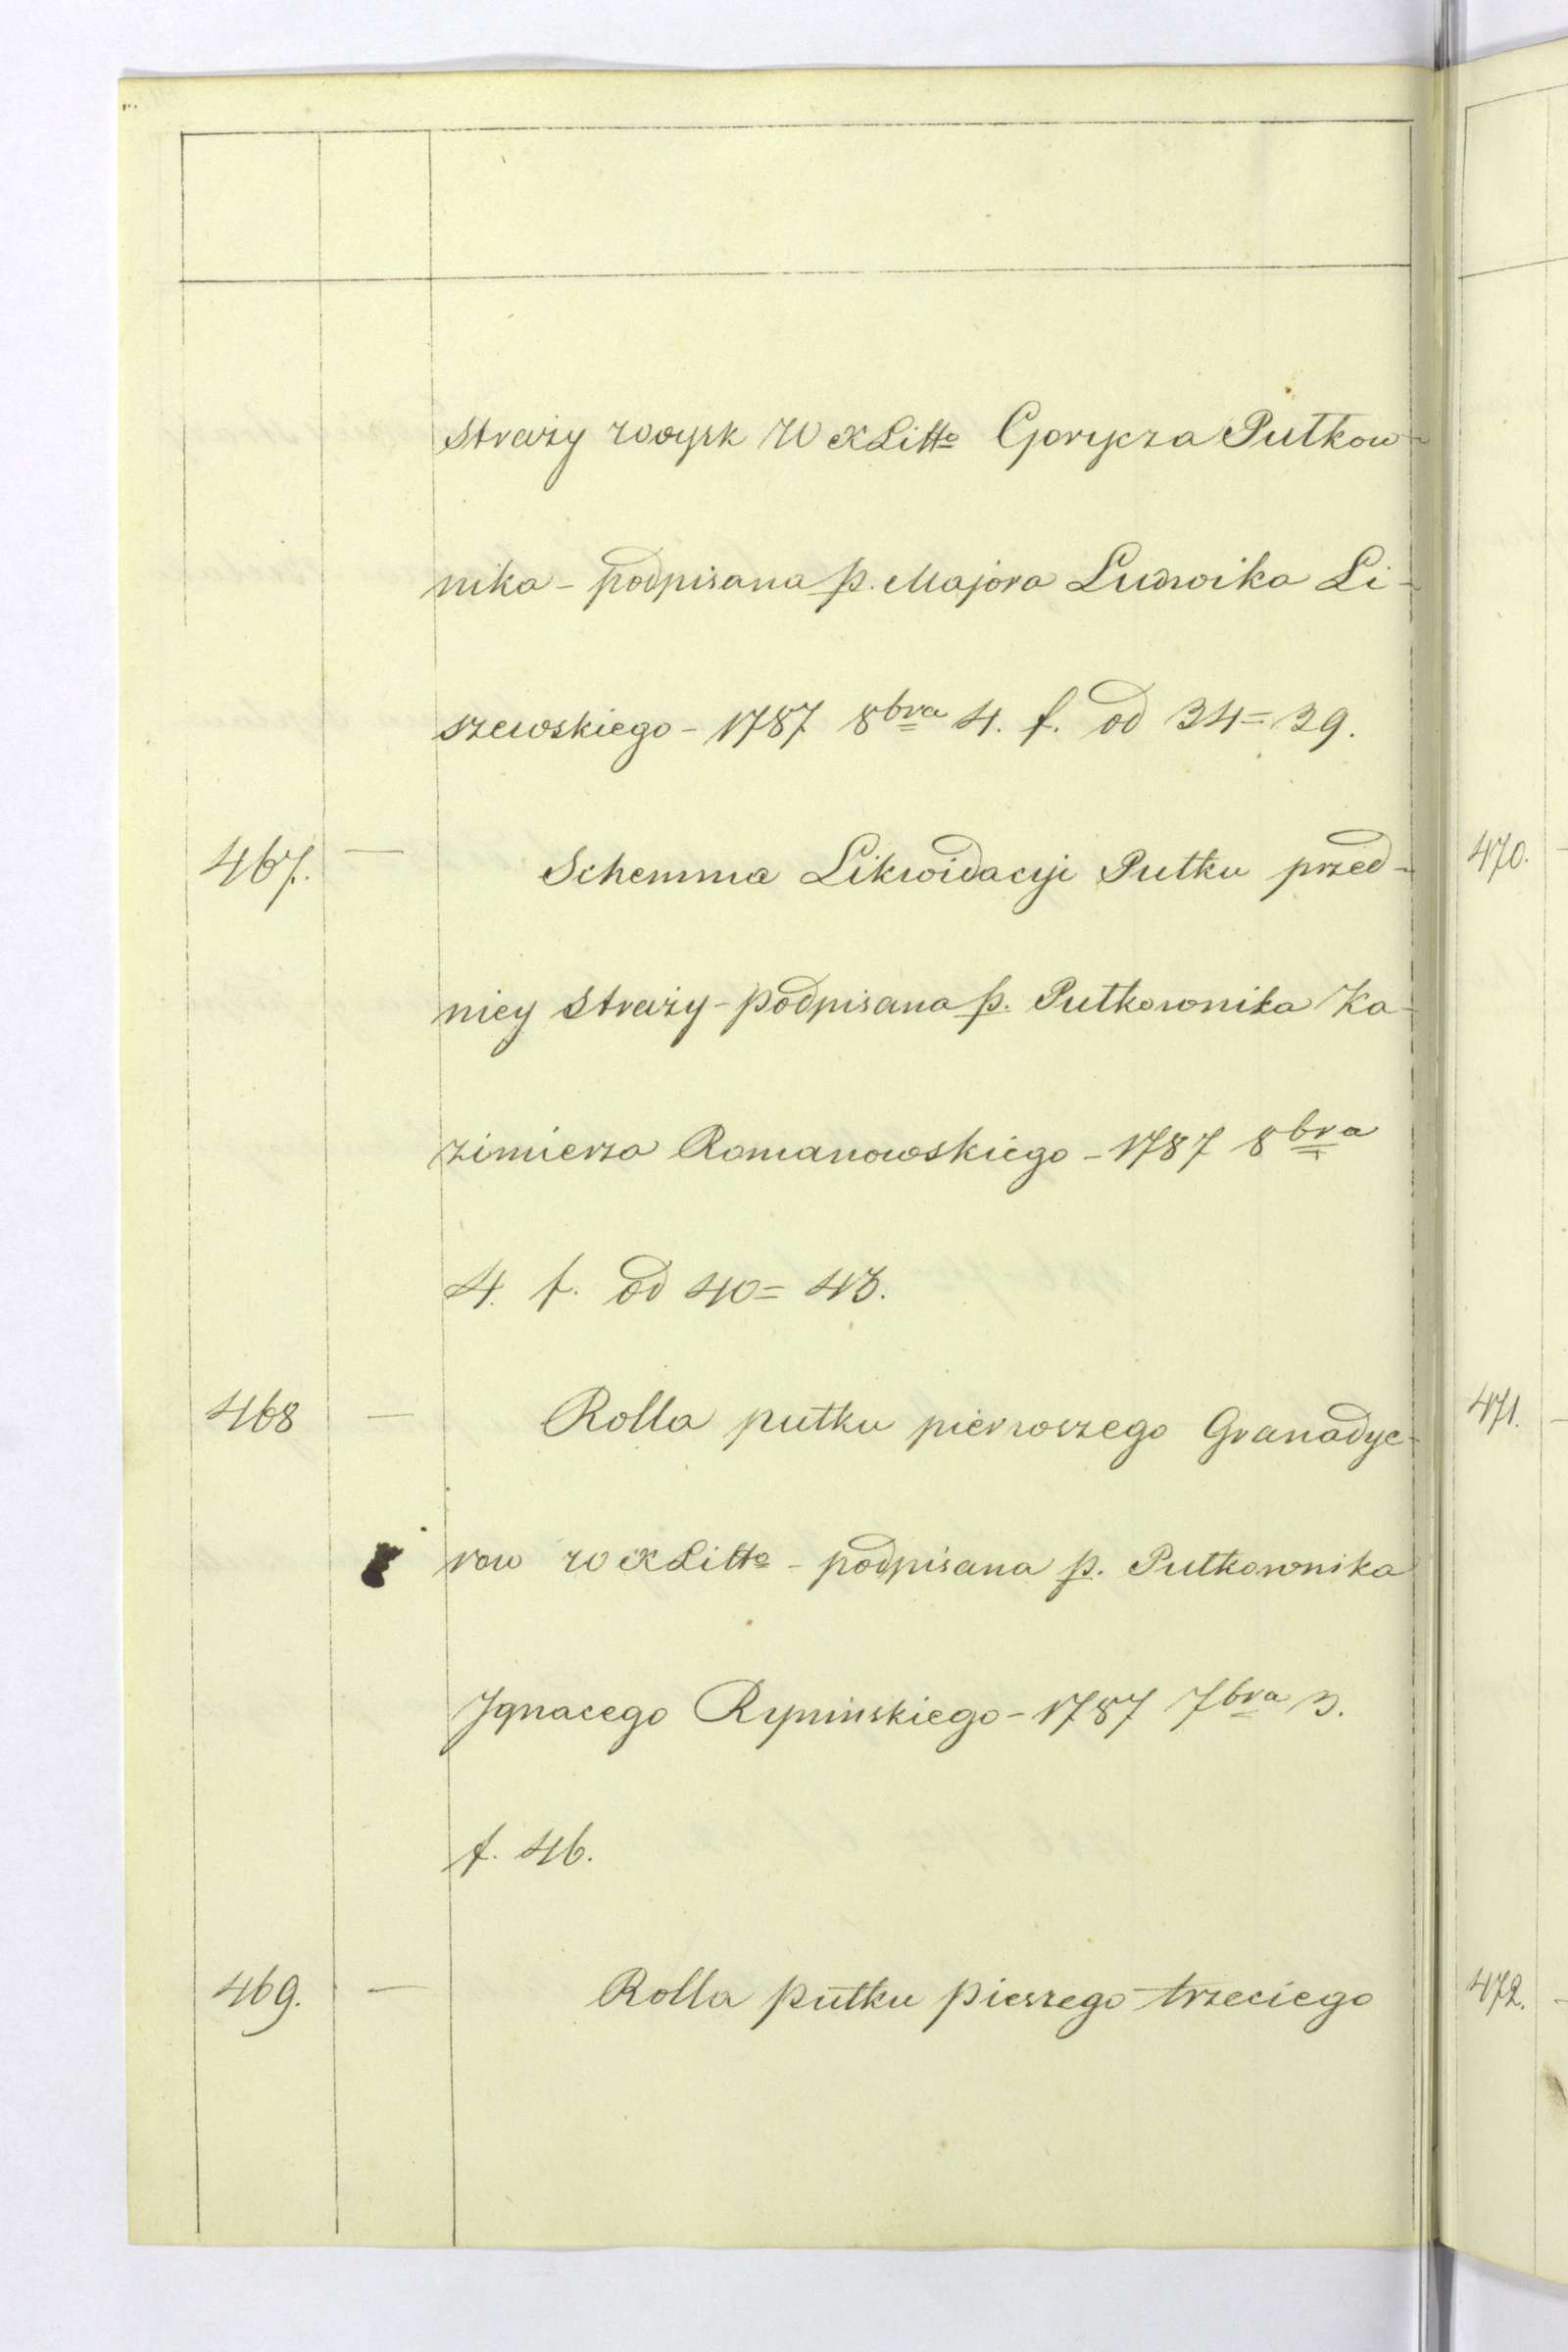 Straży woysk W X Litto Gorycza Pułkow-
nika - podpisana p. Majora Ludwika Li-
szewskiego - 1787 8bra 4. f. od 34=39.
467. — Schemma Likwidacyi Pułku przed-
niey Straży - podpisana p. Pułkownika Ka-
zimierza Romanowskiego - 1787 8bra
4. f. od 40=43.
468 — Rolla pułku pierwszego Granadye-
row W X Litto - podpisana p. Pułkownika
Jgnacego Rypinskiego - 1787 7bra 3.
f. 46.
469. — Rolla pułku pieszego trzeciego
470.
471.
472.